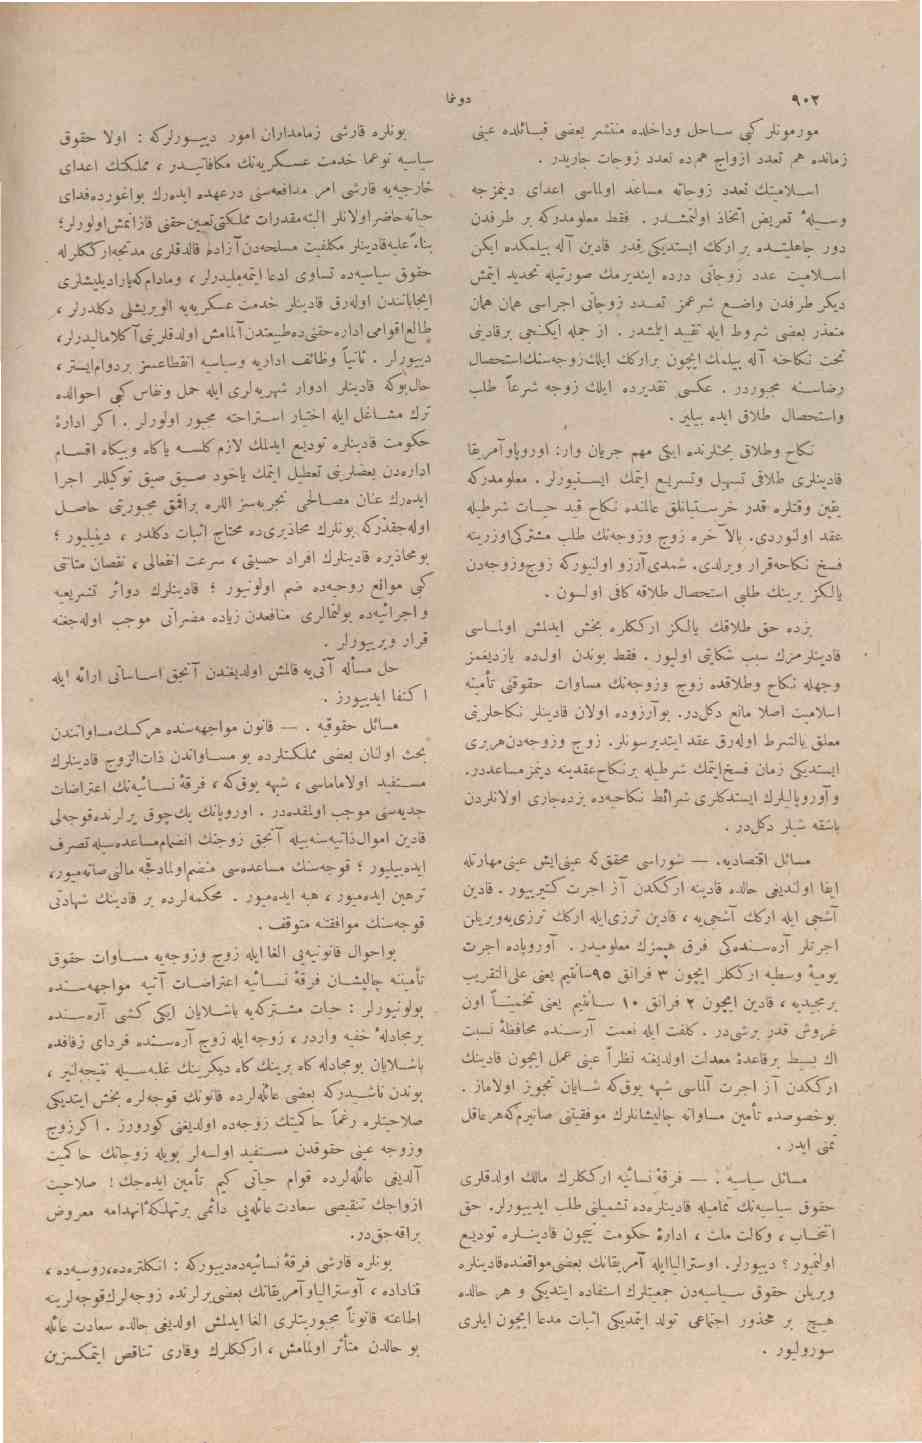 ٩٠٢
دوڭما
مورمونلر كبی ساحل وداخلده منتشر بعضی قبائلده عینی
زمانده هم تعدد ازواج هم‌ده تعدد زوجات جاریدر .
اسلامیتك تعدد زوجاته مساعد اولماسی اعدای دینمزجه
وسیلهٔ تعریض اتخاذ اولنمشدر . فقط معلومدركه بر طرفدن
دور جاهلیتده بر اركك ایستدیكی قدر قادین آله بیلمكده ایكن
اسلامیت عدد زوجاتی درده ایندیرمك صورتیله تحدید ایتمش
دیكر طرفدن واضع شرعمز تعدد زوجاتی اجراسی همان همان
متعذر بعضی شروط ایله تقیید ایلمشدر . از جمله ایكنجی برقادینی
تحت نكاحنه آله بیلمك ایچون براركك ایلك زوجه‌سنك استحصال
رضاسنه مجبوردر . عكسی تقدیرده ایلك زوجه شرعاً طلب
واستحصال طلاق ایده بیلیر .
نكاح وطلاق بحثلرنده ایكی مهم جریان وار: اوروپاوآمریقا
قادینلری طلاقی تسهیل وتسریع ایتمك ایستیورلر . معلومدركه
یقین وقتلره قدر خرستیانلق عالمنده نكاح قید حیات شرطیله
عقد اولنوردی. بالآخره زوج وزوجه‌نك طلب مشتركی اوزرینه
فسخ نكاحه قرار ویرلدی. شمدی آرزو اولنیوركه زوج وزوجه‌دن
یالكز برینك طلبی استحصال طلاقه كافی اولسون .
بزده حق طلاقك یالكز ارككلره بخش ایدلمش اولماسی
قادینلرمزك سبب شكایتی اولیور . فقط بوندن اول‌ده یازدیغمز
وجهله نكاح وطلاقده زوج وزوجه‌نك مساوات حقوقنی تأمینه
اسلامیت اصلا مانع دكل‌در. بوآرزوده اولان قادینلر نكاحلرینی
معلق بالشرط اوله‌رق عقد ایتدیرسونلر. زوج وزوجه‌دن هربری
ایستدیكی زمان فسخ ایتمك شرطیله برنكاح عقدینه دینمز مساعددر.
وآوروپالیلرك ایستدكلری شرائط نكاحیه‌ده بزده جاری اولانلردن
باشقه شیلر دكل‌در .
مسائل اقتصادیه. — شوراسی محقق كه عینی ایش عینی مهارتله
ایفا اولندیغی حالده قادینه ارككدن آز اجرت كتیرییور. قادین
آشجی ایله اركك آشجی‌یه ، قادین ترزی ایله اركك ترزی‌یه ویریلن
اجرتلر آره‌سنده‌كی فرق هپمزك معلومیدر . آوروپاده اجرت
یومیهٔ وسطیه ارككلر ایچون ٣ فرانق ٩٥ سانتیم یعنی علی التقریب
برمجیدیه ، قادین ایچون ٢ فرانق ١٠ سانتیم یعنی تخمیناً اون
غروش قدر برشی‌در . كلفت ایله نعمت آرسنده محافظهٔ نسبت
اك بسیط برقاعدهٔ معدلت اولدیغنه نظراً عینی عمل ایچون قادینك
ارككدن آز اجرت آلماسی شبهه یوق كه شایان تجویز اولاماز .
بوخصوصده تأمین مساواته چالیشانلرك موفقیتنی صانیرم كه هر عاقل
تمنی ایدر .
مسائل سیاسیه . — فرقهٔ نسائیه ارككلرك مالك اولدقلری
حقوق سیاسیه‌نك تمامیله قادینلره‌ده تشمیلنی طلب ایدییورلر. حق
انتخاب ، وكالت ملت ، ادارهٔ حكومت نیچون قادینلره تودیع
اولنمیور ؟ دییورلر. اوسترالیا ایله آمریقانك بعضی مواقعنده قادینلره
ویریلن حقوق سیاسیه‌دن جمعیتلرك استفاده ایتدیكی و هر حالده
هیچ بر محذور اجتماعی تولد ایتمدیكی اثبات مدعا ایچون ایلری
سورولیور .
بونلره قارشی زمامداران امور دییورلركه : اولا حقوق
سیاسیه نوعما خدمت عسكریه‌نك مكافاتیدر ، مملكتك اعدای
خارجیه‌یه قارشی امر مدافعه‌سنی درعهده ایده‌رك بواغورده فدای
حیاته حاضر اولانلر البته مقدرات مملكتی تعیین حقنی قازانمش اولورلر؛
بناءً علیه قادینلر مكلفیت مسلحه‌دن آزاده قالدقلری مدتجه ارككلرله
حقوق سیاسیه‌ده تساوی ادعا ایتمه‌ملیدرلر ، ومادام كه یارادیلیشلری
ایجاباتندن اوله‌رق قادینلر خدمت عسكریه‌یه الویریشلی دكلدرلر ،
طالع اقوامی اداره حقنی‌ده طبیعتدن آلمامش اولدقلرینی آكلامالیدرلر،
دییورلر . ثانیاً وظائف اداریه وسیاسیه انقطاعسز بردوام ایستر ،
حال‌بوكه قادینلر ادوار شهریه‌لری ایله حمل ونفاس كبی احوالده
ترك مشاغل ایله اختیار استراحته مجبور اولورلر . اكر ادارهٔ
حكومت قادینلره تودیع ایدلمك لازم كلسه یاكاه وبیكاه اقسام
اداره‌دن بعضلرینی تعطیل ایتمك یاخود صیق صیق توكیللر اجرا
ایده‌رك عنان مصالحی تجربه‌سز اللره براقمق مجبوریتی حاصل
اوله‌جقدركه بونلرك محاذیری‌ده محتاج اثبات دكلدر ، دینیلیور ؛
بومحاذیره قادینلرك افراد حسیتی ، سرعت انفعالی ، نقصان متانتی
كبی موانع روحیه‌ده ضم اولونیور ؛ قادینلرك دوائر تشریعیه
واجرائیه‌ده بولنمالری منافعدن زیاده مضراتی موجب اوله‌جغنه
قرار ویرییورلر .
حل مسأله آتی‌یه قالمش اولدیغندن آنجق اساساتی ارائه ایله
اكتفا ایدییورز .
مسائل حقوقیه . — قانون مواجهه‌سنده هركسك مساواتندن
بحث اولنان بعضی مملكتلرده بو مساواتدن ذات الزوج قادینلرك
مستفید اولاماماسی ، شبهه یوق كه ، فرقهٔ نسائیه‌نك اعتراضات
جدیه‌سنی موجب اولمقده‌در . اوروپانك پك چوق یرلرنده قوجه‌لی
قادین اموال ذاتیه‌سنه بیله آنجق زوجنك انضمام مساعده‌سیله تصرف
ایده‌بیلیور ؛ قوجه‌سنك مساعده‌سی منضم اولمادقجه مالنی صاته‌میور،
ترهین ایده‌میور ، هبه ایده‌میور . محكمه‌لرده بر قادینك شهادتی
قوجه‌سنك موافقتنه متوقف .
بواحوال قانونیه‌یی الغا ایله زوج وزوجه‌یه مساوات حقوق
تأمینه چالیشان فرقهٔ نسائیه اعتراضات آتیه مواجهه‌سنده
بولونیورلر : حیات مشتركه‌یه باشلایان ایكی كشی آره‌سنده
برمجادلهٔ خفیه واردر ، زوجه ایله زوج آره‌سنده فردای زفافده
باشلایان بومجادله كاه برینك كاه دیكرینك غلبه‌سیله نتیجه‌لنیر ،
بوندن ناشیدركه بعضی عائله‌لرده قانونك قوجه‌لره بخش ایتدیكی
صلاحیتلره رغماً حاكمیتك زوجه‌ده اولدیغنی كورورز . اكر زوج
وزوجه عینی حقوقدن مستفید اولسه‌لر بویله زوجاتك حاكمیت
آلدیغی عائله‌لرده قوام حیاتی كیم تأمین ایده‌جك ! صلاحیت
ازواجك تنقیصی سعادت عائله‌یی دائمی برتهلكهٔ انهدامه معروض
براقه‌جق‌در.
بونلره قارشی فرقهٔ نسائیه‌ده دییوركه : انكلتره‌ده، روسیه‌ده ،
قناداده ، آوسترالیا وآمریقانك بعضی یرلرنده زوجه‌لرك قوجه‌لرینه
اطاعته قانوناً مجبوریتلری الغا ایدلمش اولدیغی حالده سعادت عائله
بو حالدن متأثر اولمامش ، ارككلرك وقاری تناقص ایتمكسزین